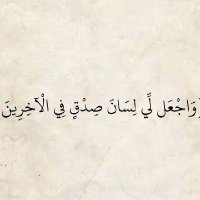 وَاجْعَل لِّي لِسَانَ صِدْقٍ فِي الْآخِرِينَ